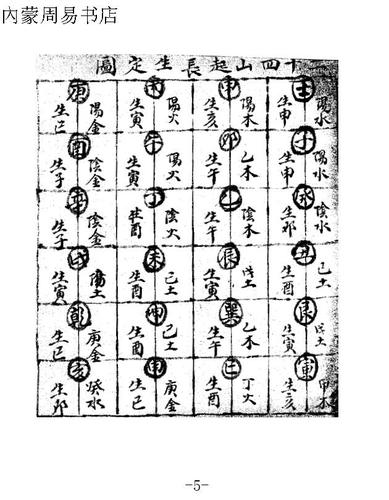 内蒙周易书店
十四山起長生定圖
壬 陽水 生申
子 陽水 生申
癸 陰水 生卯
丑 己土 生酉
艮 戊土 生寅
寅 甲木 生亥
甲 陽木 生亥
卯 乙木 生午
乙 陰木 生午
辰 戊土 生寅
巽 乙木 生午
巳 丁火 生酉
陽火 生寅
午 陽火 生寅
丁 陰火 酉
未 己土 生酉
坤 己土 生酉
申 庚金 生巳
庚 陽金 生巳
酉 陰金 生子
辛 陰金 生子
戌 陽土 生寅
乾 庚金 生巳
亥 癸水 生卯
-5-